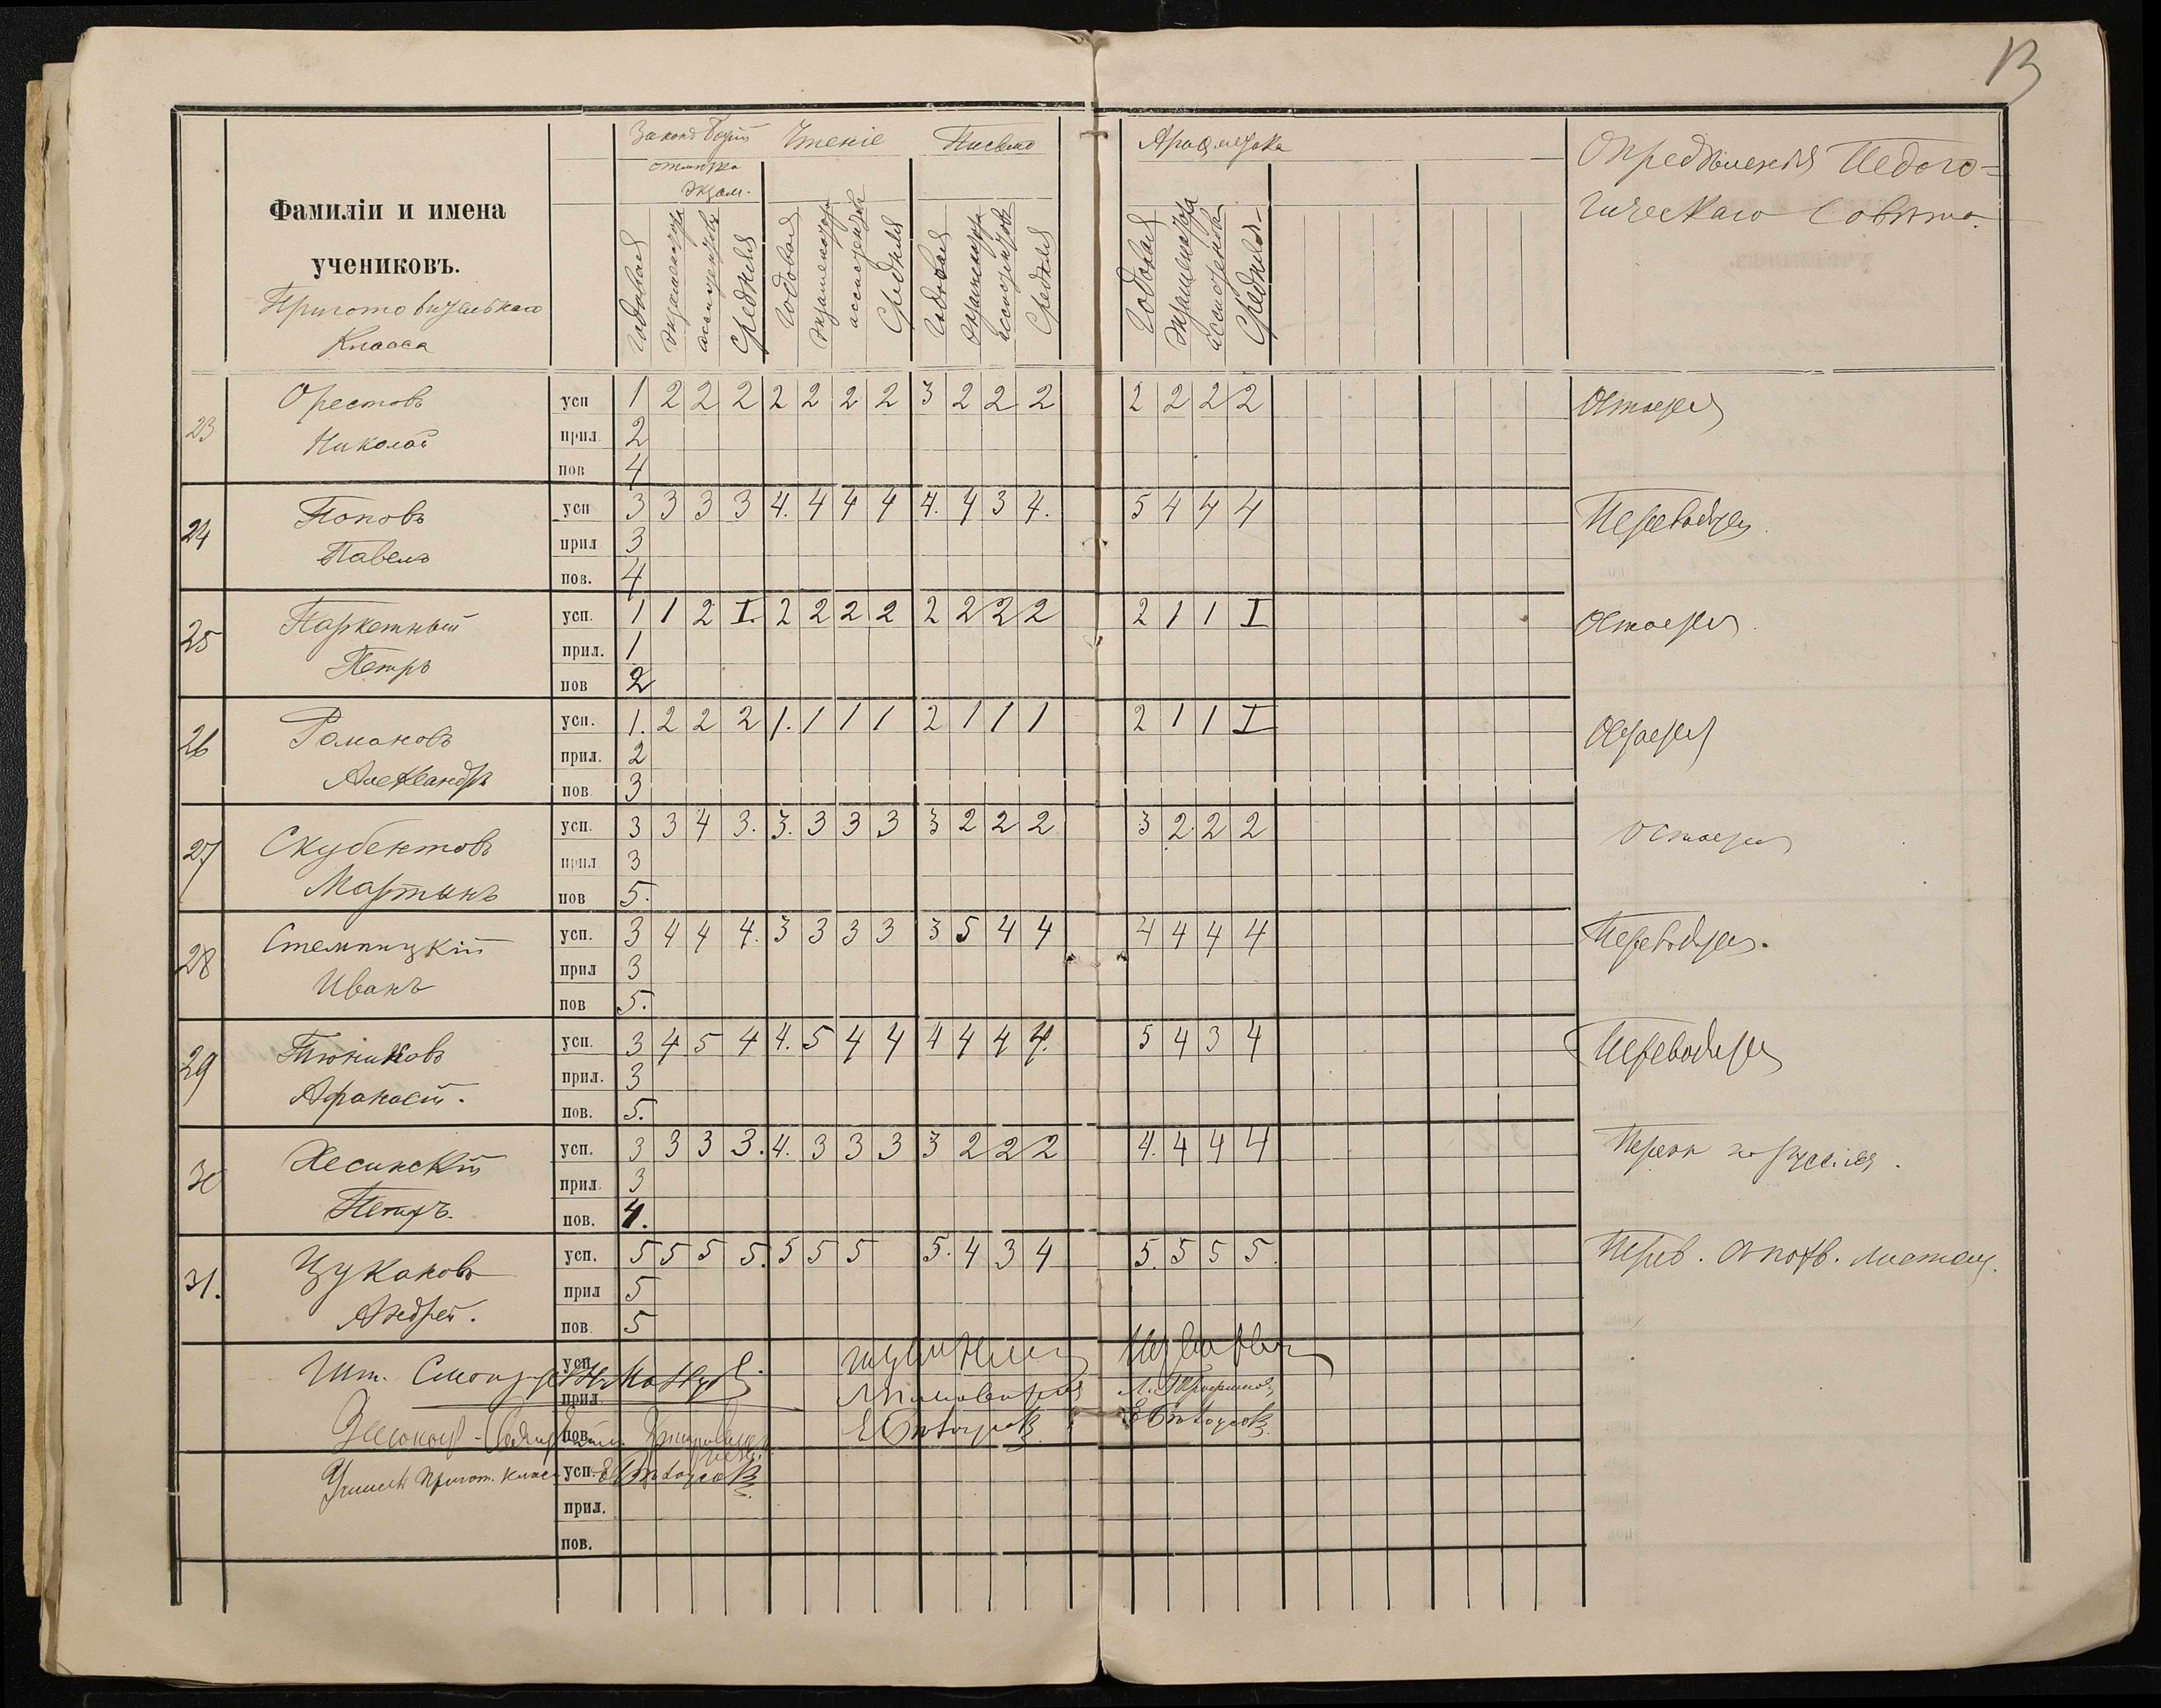 13
Законъ Божій Чтеніе Письмо Арифметика
отметка
экзам.
Опредѣленія Педаго=
гическаго Совѣта.
Фамиліи и имена
учениковъ.
Приготовительнаго
Класса
Годовая Экзаменатора ассистента Средняя Годовая Экзаменатора ассистента Средняя Годовая Экзаменатора ассистента Средняя Годовая Экзаменатора ассистента Средняя
23 Орестовъ усп 1 2 2 2 2 2 2 2 3 2 2 2 2 2 2 2 Остается
Николай прил. 2
пов 4
24 Поповъ усп 3 3 3 3 4. 4 4 4 4. 4 3 4. 5 4 4 4 Переводится
Павелъ прил 3
пов. 4
25 Паркетный усп. 1 1 2 I. 2 2 2 2 2 2 2 2 2 1 1 I Остается
Петръ прил. 1
пов 2
26 Романовъ усп. 1. 2 2 2 1. 1 1 1 2 1 1 1 2 1 1 I Остается
Александръ прил. 2
пов. 3
27 Скубентовъ усп. 3 3 4 3. 3. 3 3 3 3 2 2 2 3 2. 2 2 Остается
Мартынъ прил 3
пов 5.
28 Стемпицкій усп. 3 4 4 4. 3 3 3 3 3 5 4 4 4 4 4 4 Переводится.
Иванъ прил 3
пов 5.
29 Тюниковъ усп. 3 4 5 4 4. 5 4 4 4 4 4 4. 5 4 3 4 Переводится
Афанасій. прил. 3
пов. 5.
30 Хесинскій усп. 3 3 3 3. 4. 3 3 3 3 2 2 2 4. 4 4 4
Петръ. прил. 3
пов. 4.
31. Цукановъ усп. 5 5 5 5. 5 5 5 5. 4 3 4 5. 5 5 5. Перев. с похв. листомъ.
Андрей. прил 5
пов. 5
Шт. Смотритель усп.
прил.
пов.
Учитель Пригот. класса усп.
прил.
пов.